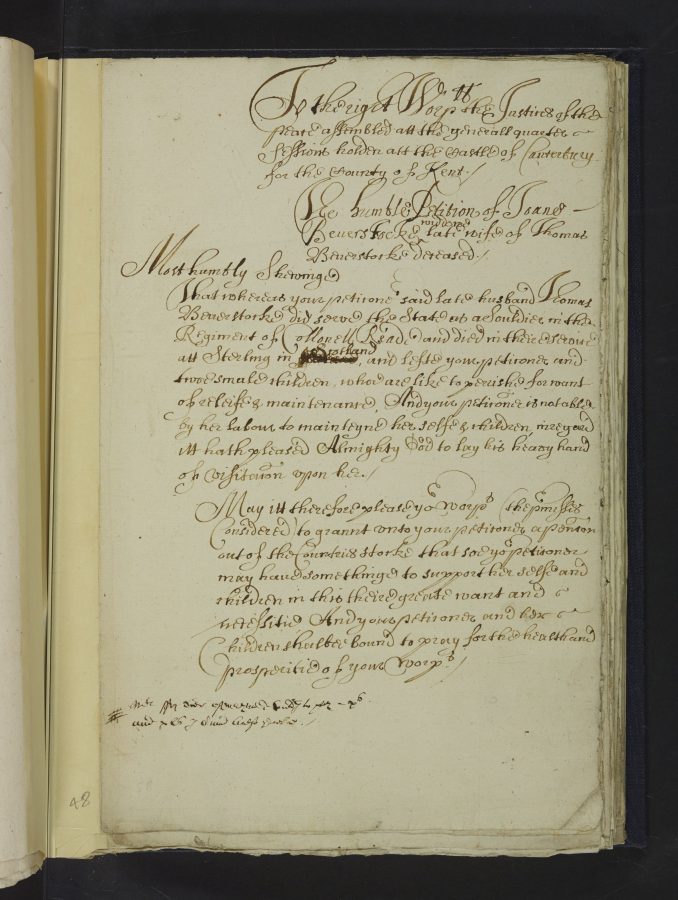 To the right Worp:ll the Justices of the
peace assembled att the generall quarter
Sessions holden att the Castle of Canterbury
for the County of Kent./
The humble Petition of Joane
Beverstocke widdowe late wife of Thomas
Beverstocke deceased./
Most humbly Shewinge
That whereas your petitioner said late husband Thomas
Beverstocke did serve the State as a Souldier in the
Regiment of Collonell Reade and died in there service
att Sterling in Scotland, and lefte your petitioner and
twoe smale children, who are like to perishe for want
of releife & maintenance, And your petitioner is not able
by her labour to mainteyne her selfe & children, in regard
itt hath pleased Almighty God to lay his heavy hand
of visitacion upon her./
May itt therefore please yor Worps (the premisses
Considered) to grannt unto your petitioner a pencon
out of the Countries stocke that soe yor petitioner
may have somethinge to support her selfe and
children in this theire greate want and
necessitie And your petitioner and her
Children shalbee bound to pray for the health and
prosperitie of your Worps./
48